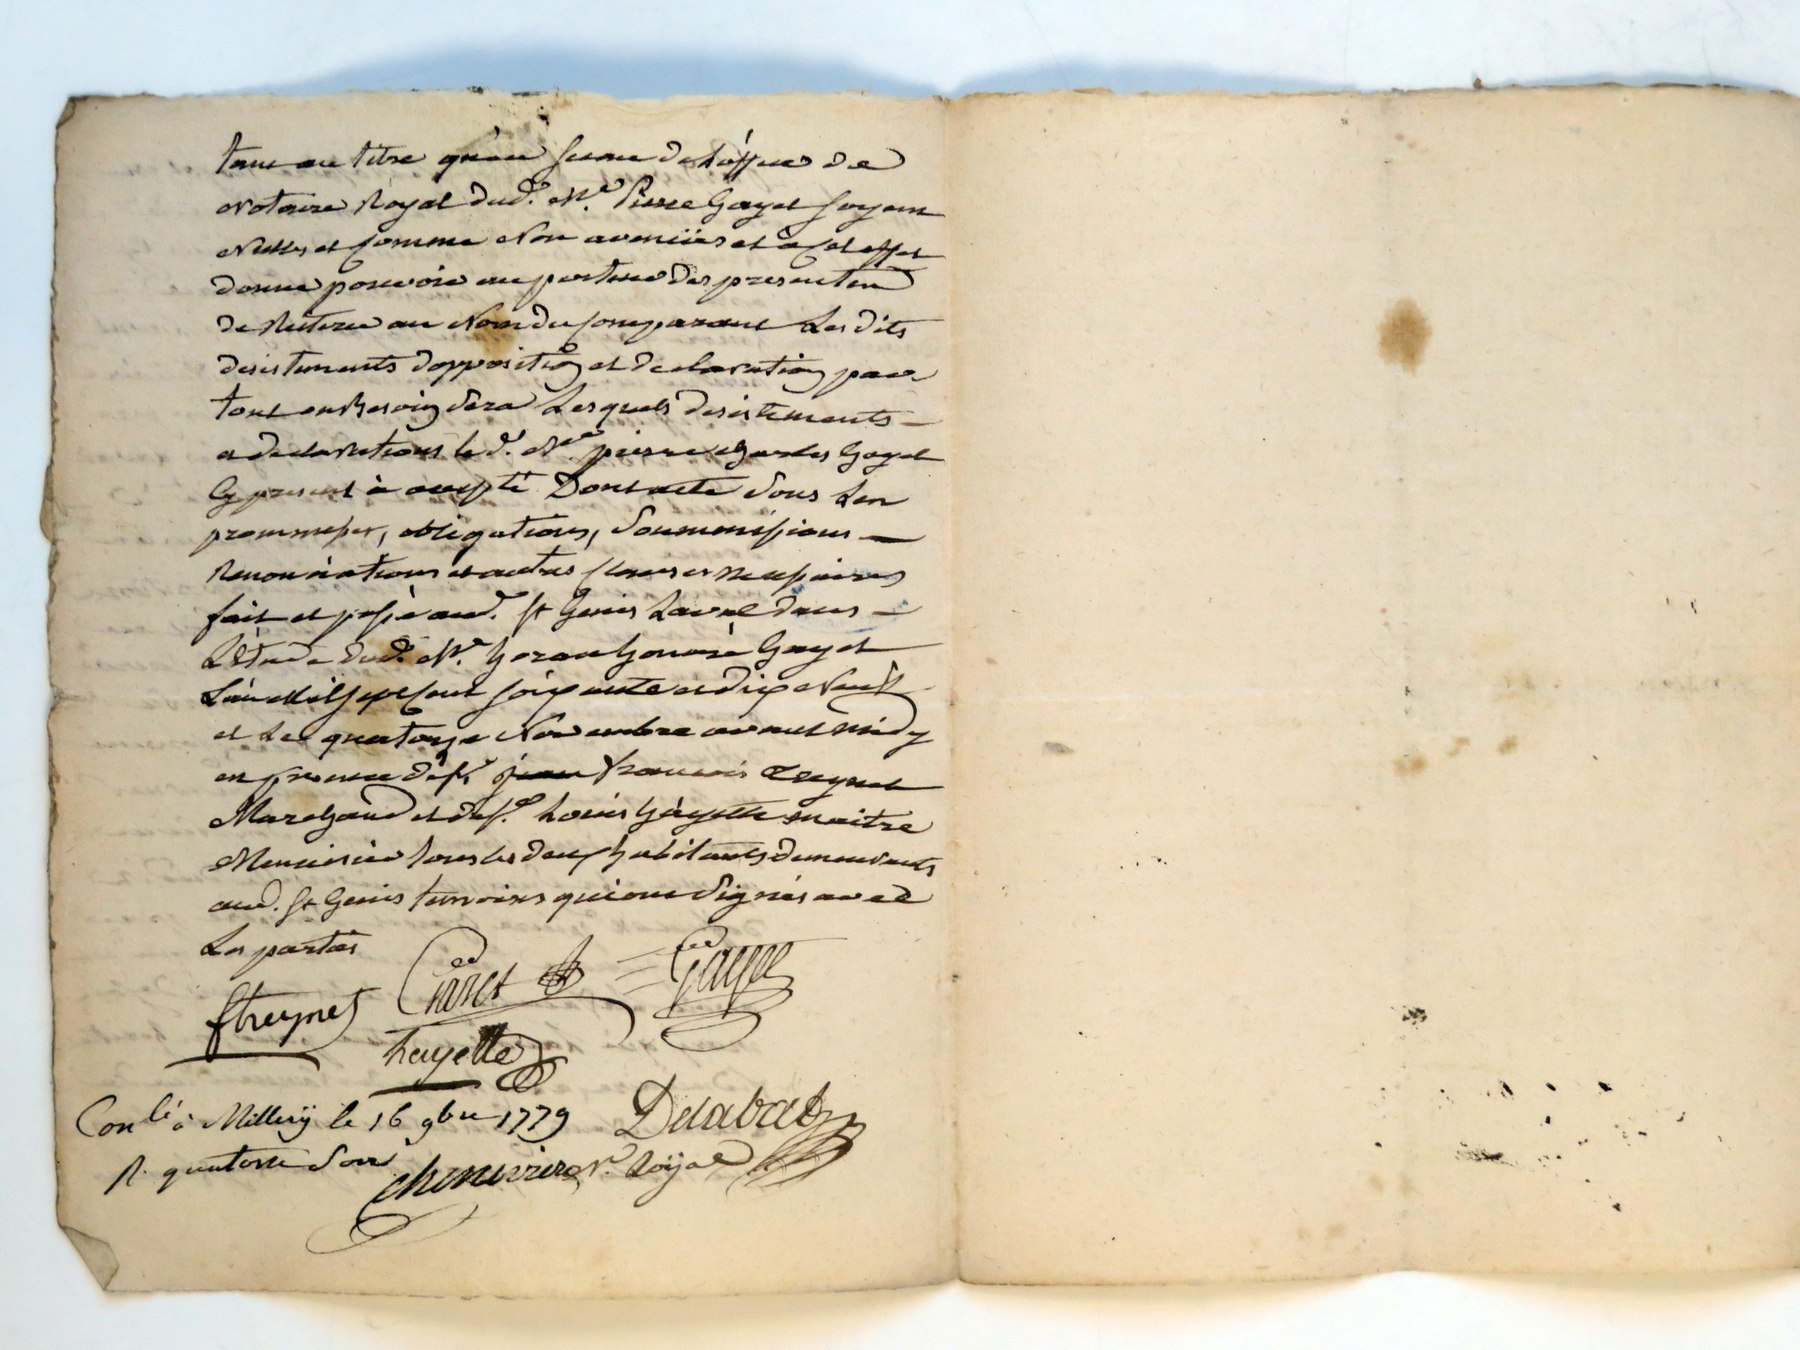 tant au titre qu'au sceau de l'office de
Notaire Royal dud. Me. Pierre Gayet soyent
Nulles et comme Non avenües et a cet effet
donne pouvoir au porteur des presentes
de Reiterer au Nom du comparant Les dits
desistements d'opposition et declaration par
tout ou Besoin sera Lesquels desistements
a declarations le d. Me. pierre charles Gayet
Cy present à accepté Dont acte sous Les
promesses, obligations, soummissions
Renonciations et autres clauses necessaires
fait et passé aud. St Genis Laval dans
L'Etude dud. Me. Gayet
L'an Mil sept cent soixante et dix Neuf
et Le quatorze Novembre avant midy
en presence de sr. francois treynet
Marchand et de sr. Louis hayette maitre
Menuisier tous les deux habitants demeurants
aud. St Genis temoins qui ont signés avec
Les parties
ftreynet Gayet
hayette
Conlé à Millery le 16 9bre 1779
R. quatorze sous Delabat
chenevier Nre. Roÿal